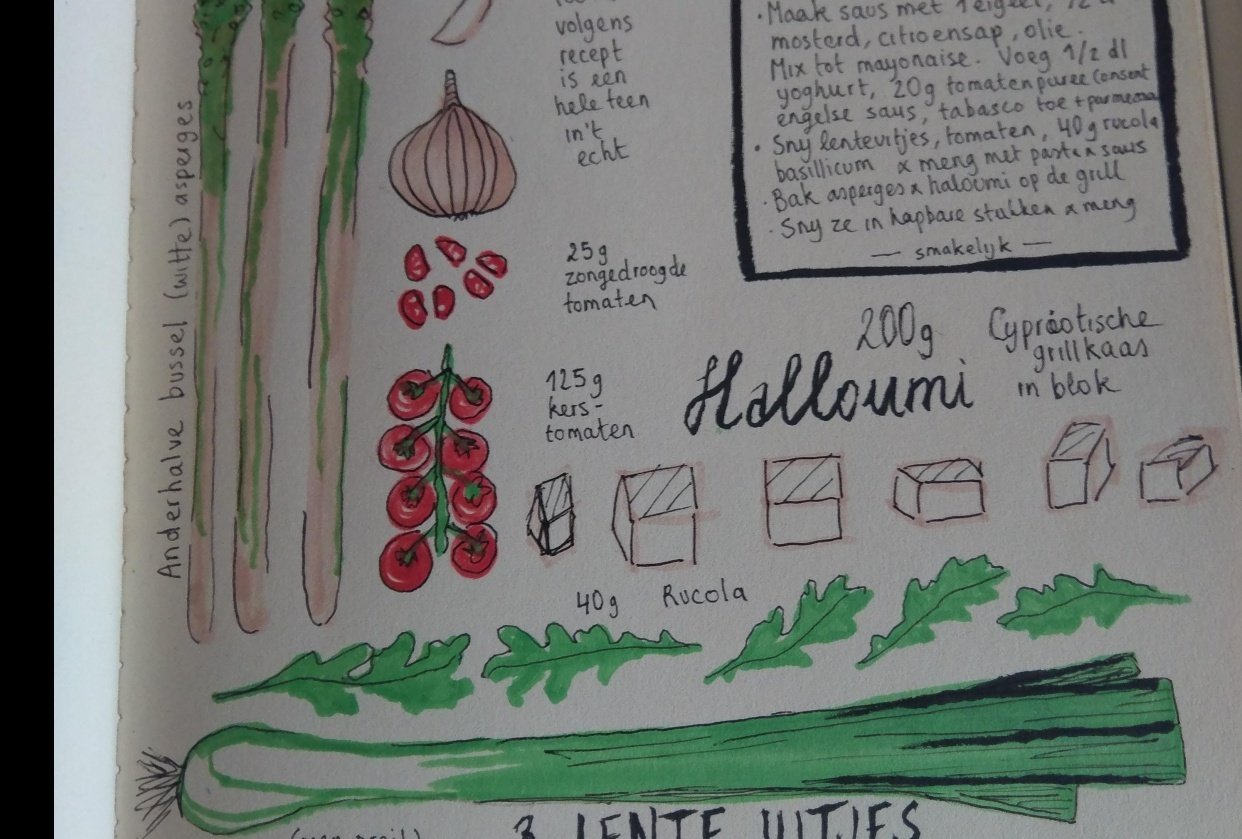 volgens
recept
is een
hele teen
in't
echt
· Maak saus met 1 eigeel,
mosterd, citroensap, olie.
Mix tot mayonaise. Voeg 1/2 dl
yoghurt, 20g tomatenpuree
engelse saus, tabasco toe +
· Sny lenteuitjes, tomaten, 40g rucola
basillicum & meng met pasta & saus
· Bak asperges & haloumi op de grill
· Sny ze in hapbare stukken & meng
— smakelyk —
Anderhalve bussel (witte) asperges
25g
zongedroogde
tomaten
125g
kers-
tomaten
200g
Halloumi
Cypriotische
grillkaas
in blok
40g Rucola
3 LENTE UITJES